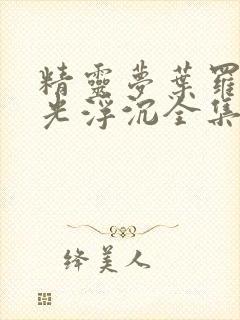 精靈夢葉羅
光浮沉全集
絳美人